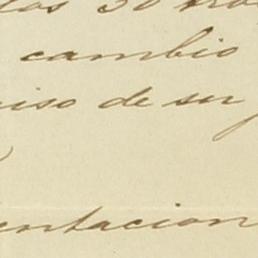 los 30
cambio
iso de su
entacion